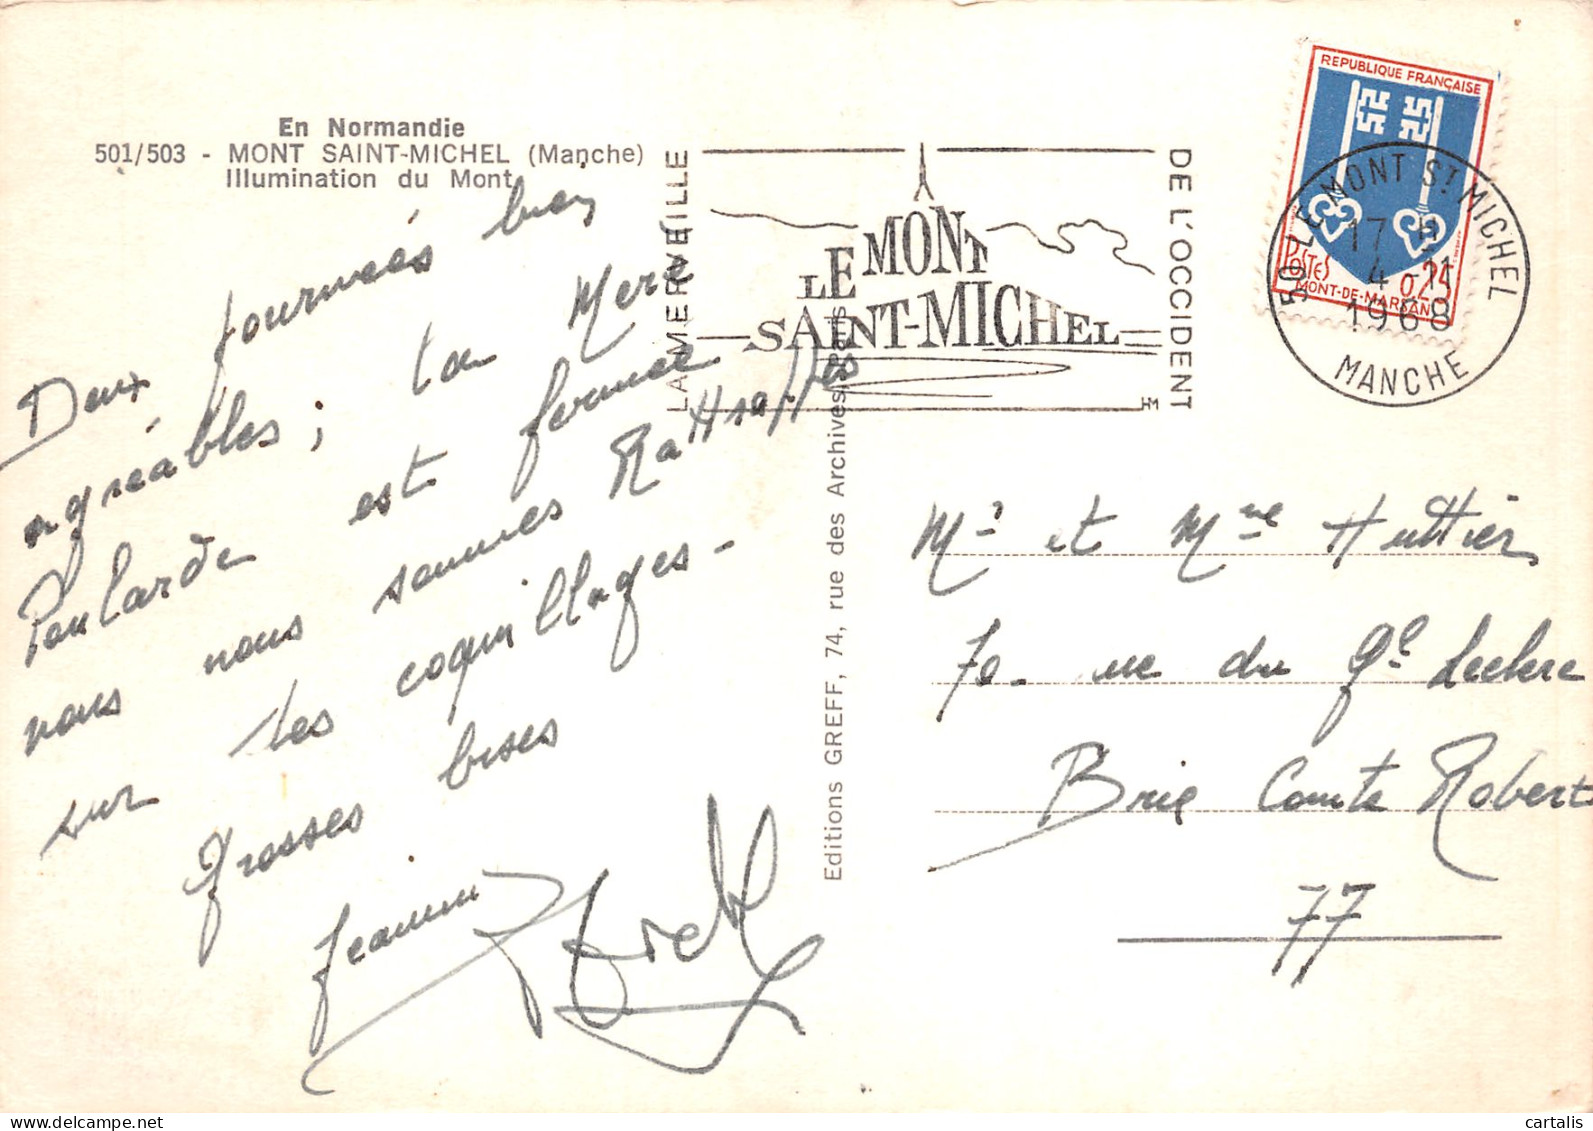 En Normandie
501/503 - MONT SAINT-MICHEL (Manche)
Illumination du Mont
Deux journées bien
agréables ; la Mère
Poularde est fermée
nous nous sommes Rattrappés
sur les coquillages -
Grosses bises
LA MERVEILLE
LE MONT
SAINT-MICHEL
DE L'OCCIDENT
REPUBLIQUE FRANÇAISE
POSTES
0,25
MONT-DE-MARSAN
50 LE MONT ST MICHEL
17 H
4 -11
1968
MANCHE
Editions GREFF, 74, rue des Archives, Paris
Mr et Mme Huttier
rue du Gl Leclerc
Brie Comte Robert
77